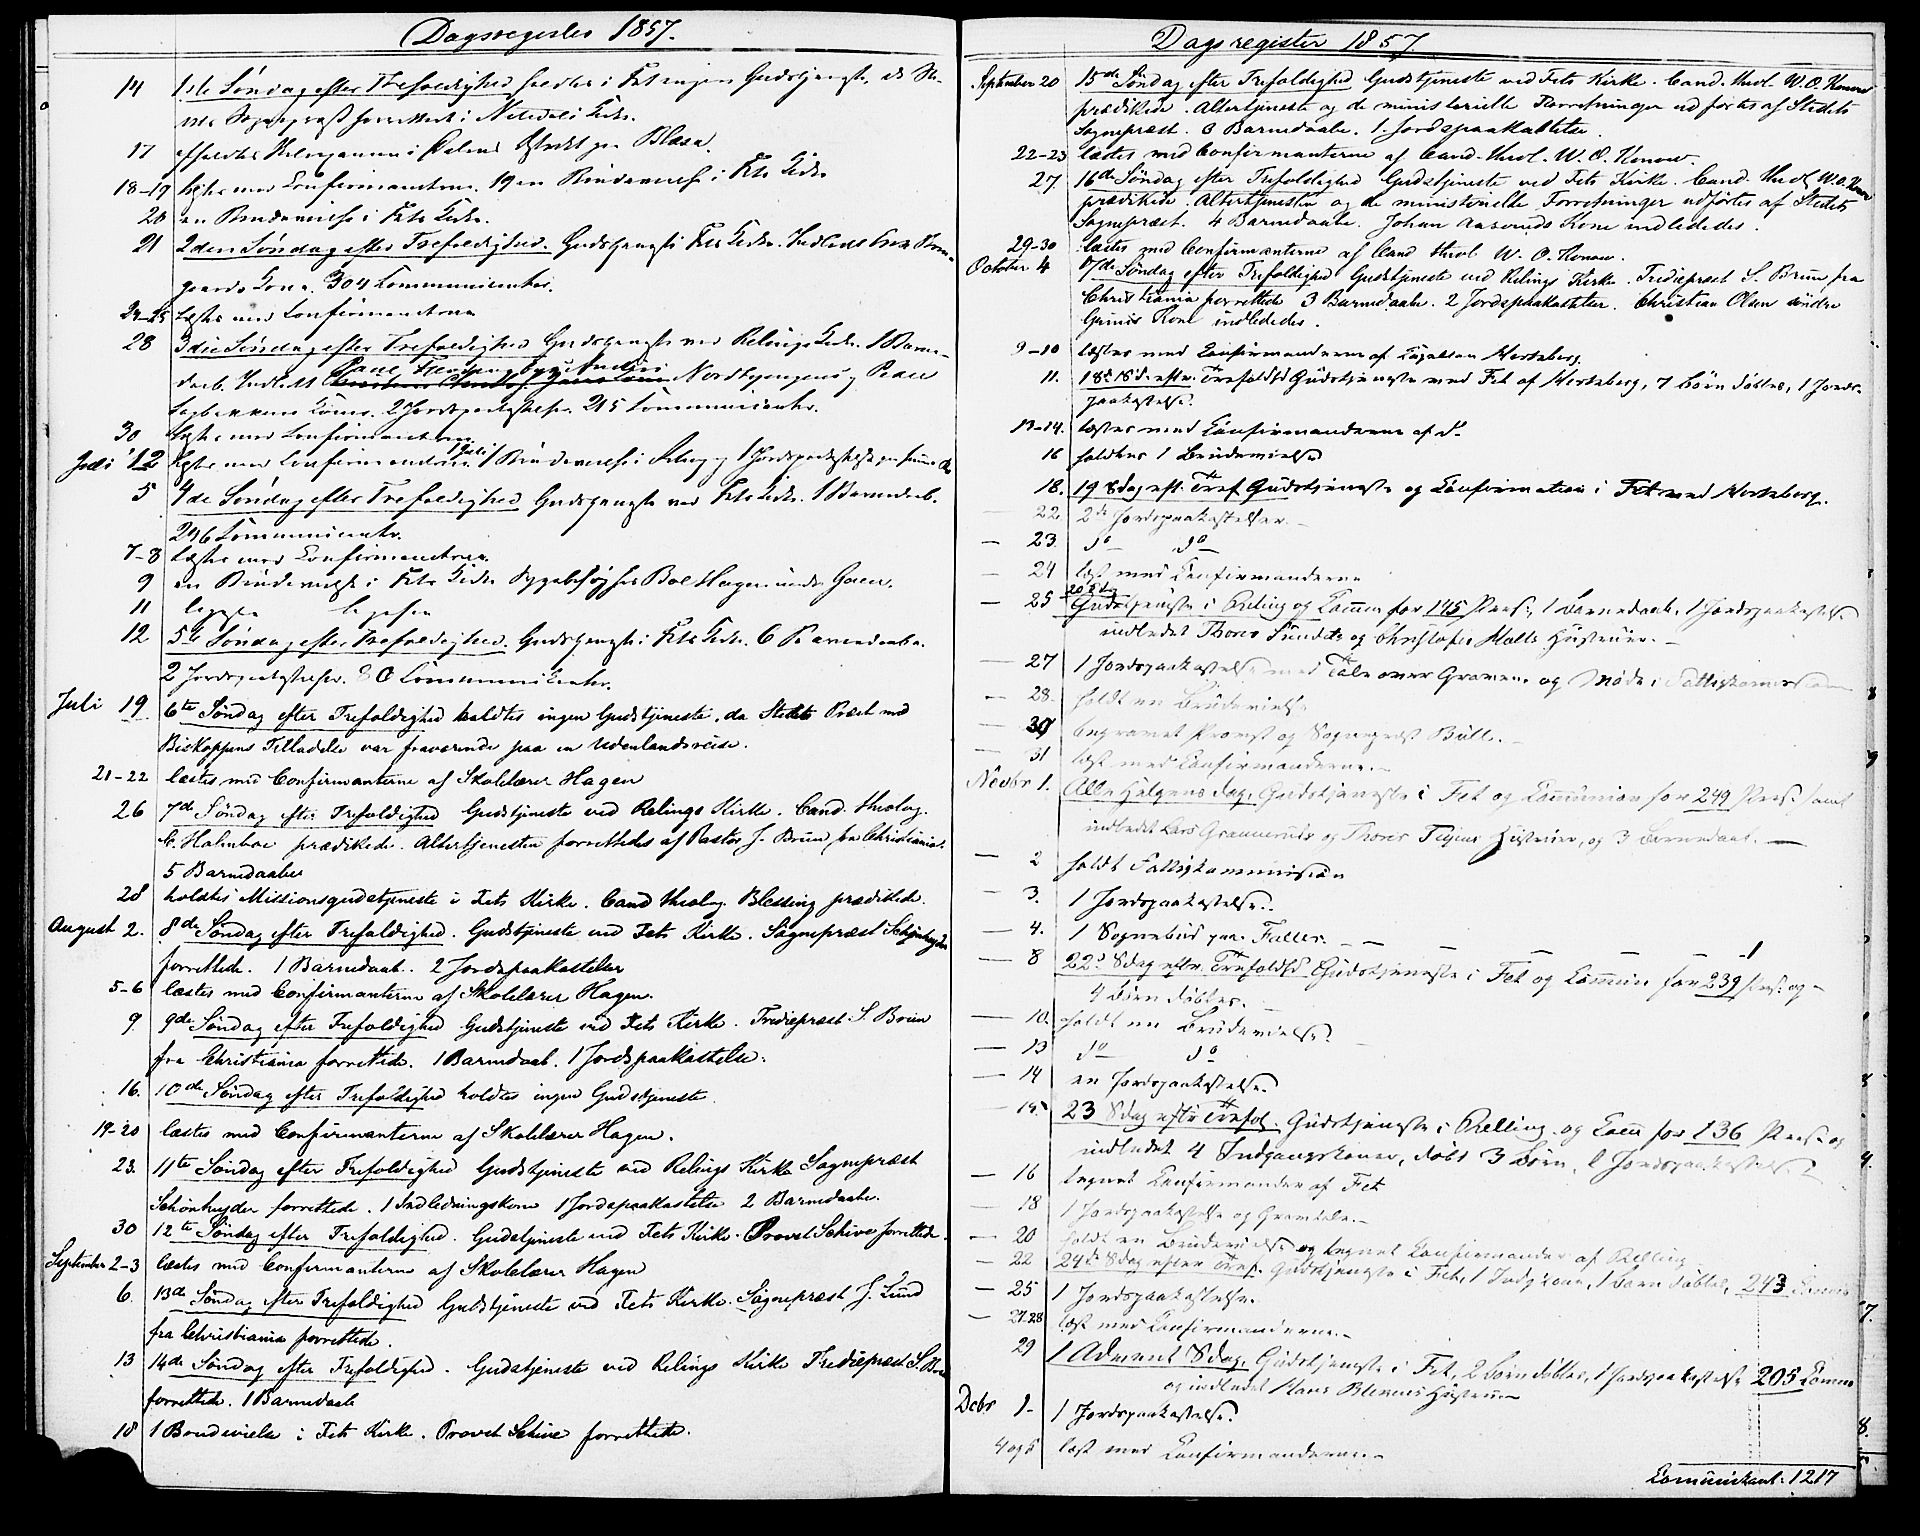 Dagsregister 1857.
14 1ste Søndag efter Trefoldighed holdtes i Fet ingen Gudstjeneste, da Ste-
dets Sognepræst forrettede i Nitedals Kirke.
17 afholdtes
18-19 læstes med Confirmanterne. 19 en Brudevielse i Fets Kirke
20 en Brudevielse i Fets Kirke.
21 2den Søndag efter Trefoldighed. Gudstjeneste i Fets Kirke. Indledet
gaards Kone. 304 Communicanter.
24-25 Læstes med Confirmanterne
28 3die Søndag efter Trefoldighed Gudstjeneste ved Relings Kirke. 1 Barne-
daab. Indledt
Koner. 2 Jordspaakastelser. 215 Communicanter.
30 læstes med Confirmanterne.
Juli 1-2 læstes med Confirmanterne. 1 Brudevielse i
5 4de Søndag efter Trefoldighed Gudstjeneste ved Fets Kirke. 1 Barnedaab.
296 Communicanter.
7-8 læstes med Confirmanterne.
9 en Brudevielse i Fets Kirke
11 ligesaa ligesaa
12 5te Søndag efter Trefoldighed. Gudstjeneste i Fets Kirke. 6 Barnedaabe.
2 Jordspaakastelser. 80 Communicanter.
Juli 19 6te Søndag efter Trefoldighed holdtes ingen Gudstjeneste, da Stedets Præst med
Biskoppens Tilladelse var fraværende paa en Udenlandsreise.
21-22 læstes med Confirmanterne af Skolelærer Hagen
26 7de Søndag efter Trefoldighed Gudstjeneste ved Relings Kirke. Cand. theolog.
Holmboe prædikede. Altertjenesten forrettedes af Pastor J. Bruun fra Christiania.
5 Barnedaabe
28 holdtes Missionsgudstjeneste i Fets Kirke. Cand theolog. Blessing prædikede.
August 2. 8de Søndag efter Trefoldighed. Gudstjeneste ved Fets Kirke. Sognepræst Schønheyder
forrettede. 1 Barnedaab. 2 Jordspaakastelser
5-6 læstes med Confirmanterne af Skolelærer Hagen.
9 9de Søndag efter Trefoldighed Gudstjeneste ved Fets Kirke. Trediepræst S. Bruun
fra Christiania forrettede. 1 Barnedaab. 1 Jordspaakastelse.
16. 10de Søndag efter Trefoldighed holdtes ingen Gudstjeneste
19-20 læstes med Confirmanterne af Skolelærer Hagen.
23. 11te Søndag efter Trefoldighed Gudstjeneste ved Relings Kirke Sognepræst
Schønheyder forrettede. 1 Indledningskone 1 Jordspaakastelse 2 Barnedaabe.
30 12te Søndag efter Trefoldighed. Gudstjeneste ved Fets Kirke. Provst Schive forrettede.
September 2-3 læstes med Confirmanterne af Skolelærer Hagen
6. 13de Søndag efter Trefoldighed Gudstjeneste ved Fets Kirke. Sognepræst J. Lund
fra Christiania forrettede.
13 14de Søndag efter Trefoldighed. Gudstjeneste ved Relings Kirke Trediepræst S. Bruun
forrettede. 1 Barnedaab
18 1 Brudevielse i Fets Kirke. Provst Schive forrettede.
Dagsregister 1857
September 20 15de Søndag efter Trefoldighed Gudstjeneste ved Fets Kirke. Cand. theol. W. O. Konow
prædikede. Altertjeneste og de ministerielle Forretninger udførtes af Stedets
Sognepræst. 6 Barnedaabe. 1 Jordspaakastelse.
22-23 læstes med Confirmanterne af Cand. theol. W. O. Konow.
27. 16de Søndag efter Trefoldighed Gudstjeneste ved Fets Kirke. Cand. theol. W. O. Konow
prædikede. Altertjenesten og de ministerielle Forretninger udførtes af Stedets
Sognepræst. 4 Barnedaabe. Johan Aaserøds Kone indlededes.
29-30 læstes med Confirmanterne af Cand theol W. O. Konow.
October 4 17de Søndag efter Trefoldighed Gudstjeneste ved Relings Kirke. Trediepræst S. Bruun fra
Christiania forrettede 3 Barnedaabe. 2 Jordspaakastelser. Christian Olsen søndre
Grinis Kone indlededes.
9-10 læstes med Confirmanderne af Capellan Hertzberg.
11. 18de Sd. eftr. Trefoldhd Gudstjeneste med Fet af Hertzberg, 7 Børn døbtes, 1 Jords-
paakastelse.
13-14. læstes med Confirmanderne af do
16 holdtes 1 Brudevielse
18. 19 Sdag eft. Tref Gudstjeneste og Confirmation i Fet med Hertzberg.
— 22. 2de Jordspaakastelser.
— 23. do do
— 24 læst med Confirmanderne
— 25 20 Sdag Gudstjeneste i Reling og Comm for 145 Pers., 1 Barnedaab, 1 Jordspaakastelse
indledet Thores Sundets og Christofer Hustruer.
— 27 1 Jordspaakastelse med Tale over Graven og Møde i Fattigkommissionen
— 28. holdt en Brudevielse
— 30 begravet Provst og Sognepræst Bull.
— 31 læst med Confirmanderne.
Novbr 1. Alle Helgens dag. Gudstjeneste i Fet og Communion for 249 Pers. samt
indledet Lars og Thores Hustruer, og 3 Barnedaab.
— 2 holdt Fattigkommission
— 3. 1 Jordspaakastelse.
— 4. 1 Sognebud paa Faller.
— 8 22d Sdag eftr. Trefoldhd Gudstjeneste i Fet og Commun for 239 Pers. og
4 Børn døbtes.
— 10. holdt en Brudevielse
— 13 do do
— 14 en Jordspaakastelse.
— 15. 23 Sdag eftr Trefol. Gudstjeneste i Relling og Com for 136 Pers. og
indledet 4 Indgangskoner, døbt 3 Børn, Jordspaakastelse
— 16 tegnet Confirmander af Fet
— 18 1 Jordspaakastelse og Gravtale.
— 20 holdt en Brudevielse og tegnet Confirmander af Relling
— 22 24de Sdag efter Tref. Gudstjeneste i Fet, 1 Indgkone, 1 Barn døbtes, 243 Comm
— 25 1 Jordspaakastelse.
— 27.28 læst med Confirmanderne.
29 1 Advent Sdag. Gudstjeneste i Fet, 2 Børn døbtes, 1 Jordspaakastelse 205 Comm
og indledet Hans Hustru
Debr 1. 1 Jordspaakastelse.
4 og 5 læst med Confirmanderne.
Communikant: 1217